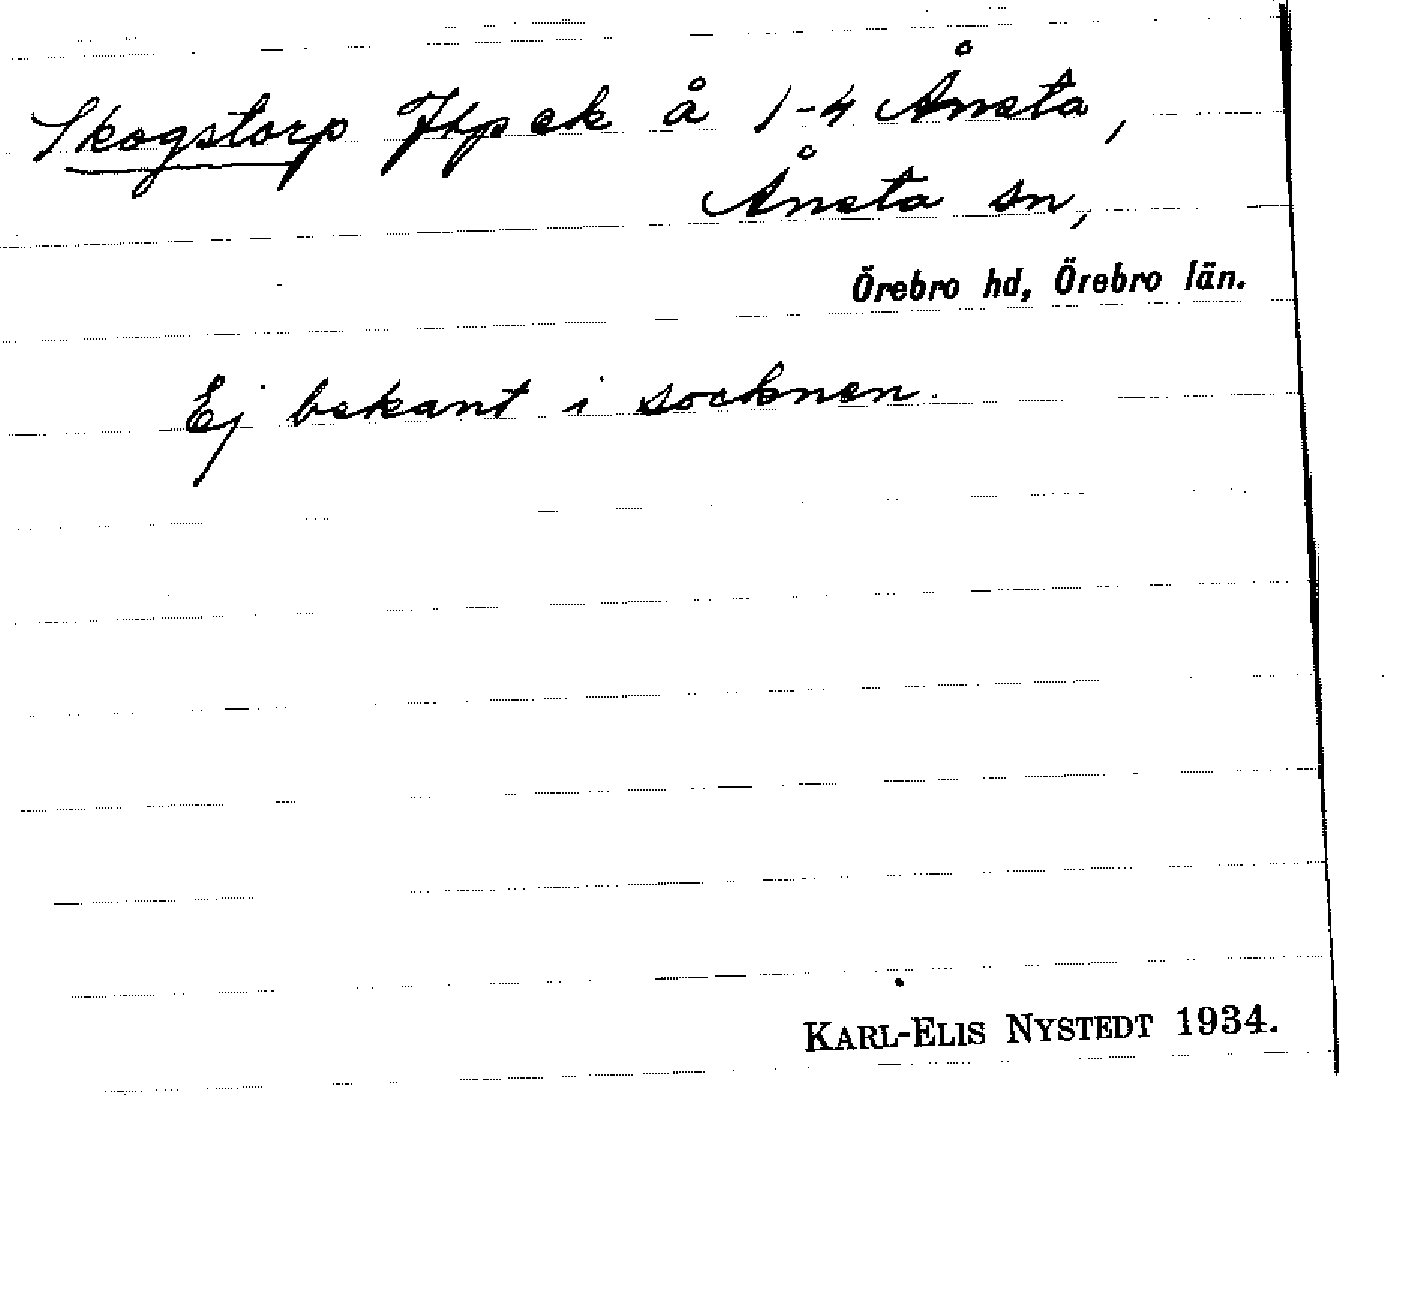 Skogstorp Jtp ek å 1-4 Ånsta,
Ånsta sn,
Örebro hd, Örebro län.
Ej bekant i socknen.
KARL-ELIS NYSTEDT 1934.